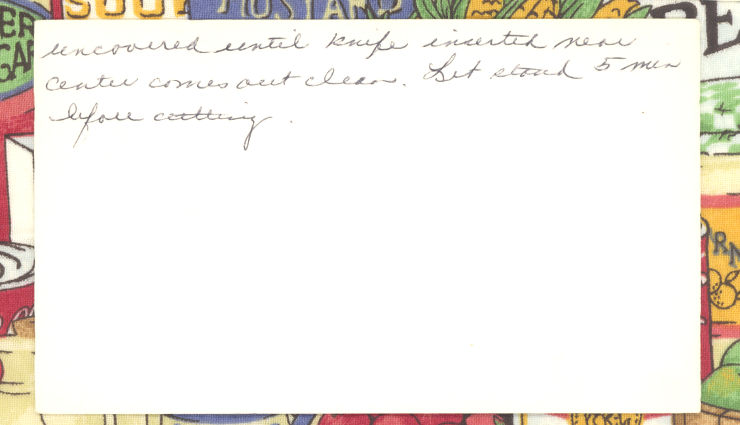 SOUP
MUSTARD
uncovered until knife inserted near
center comes out clean. Let stand 5 min
before cutting.